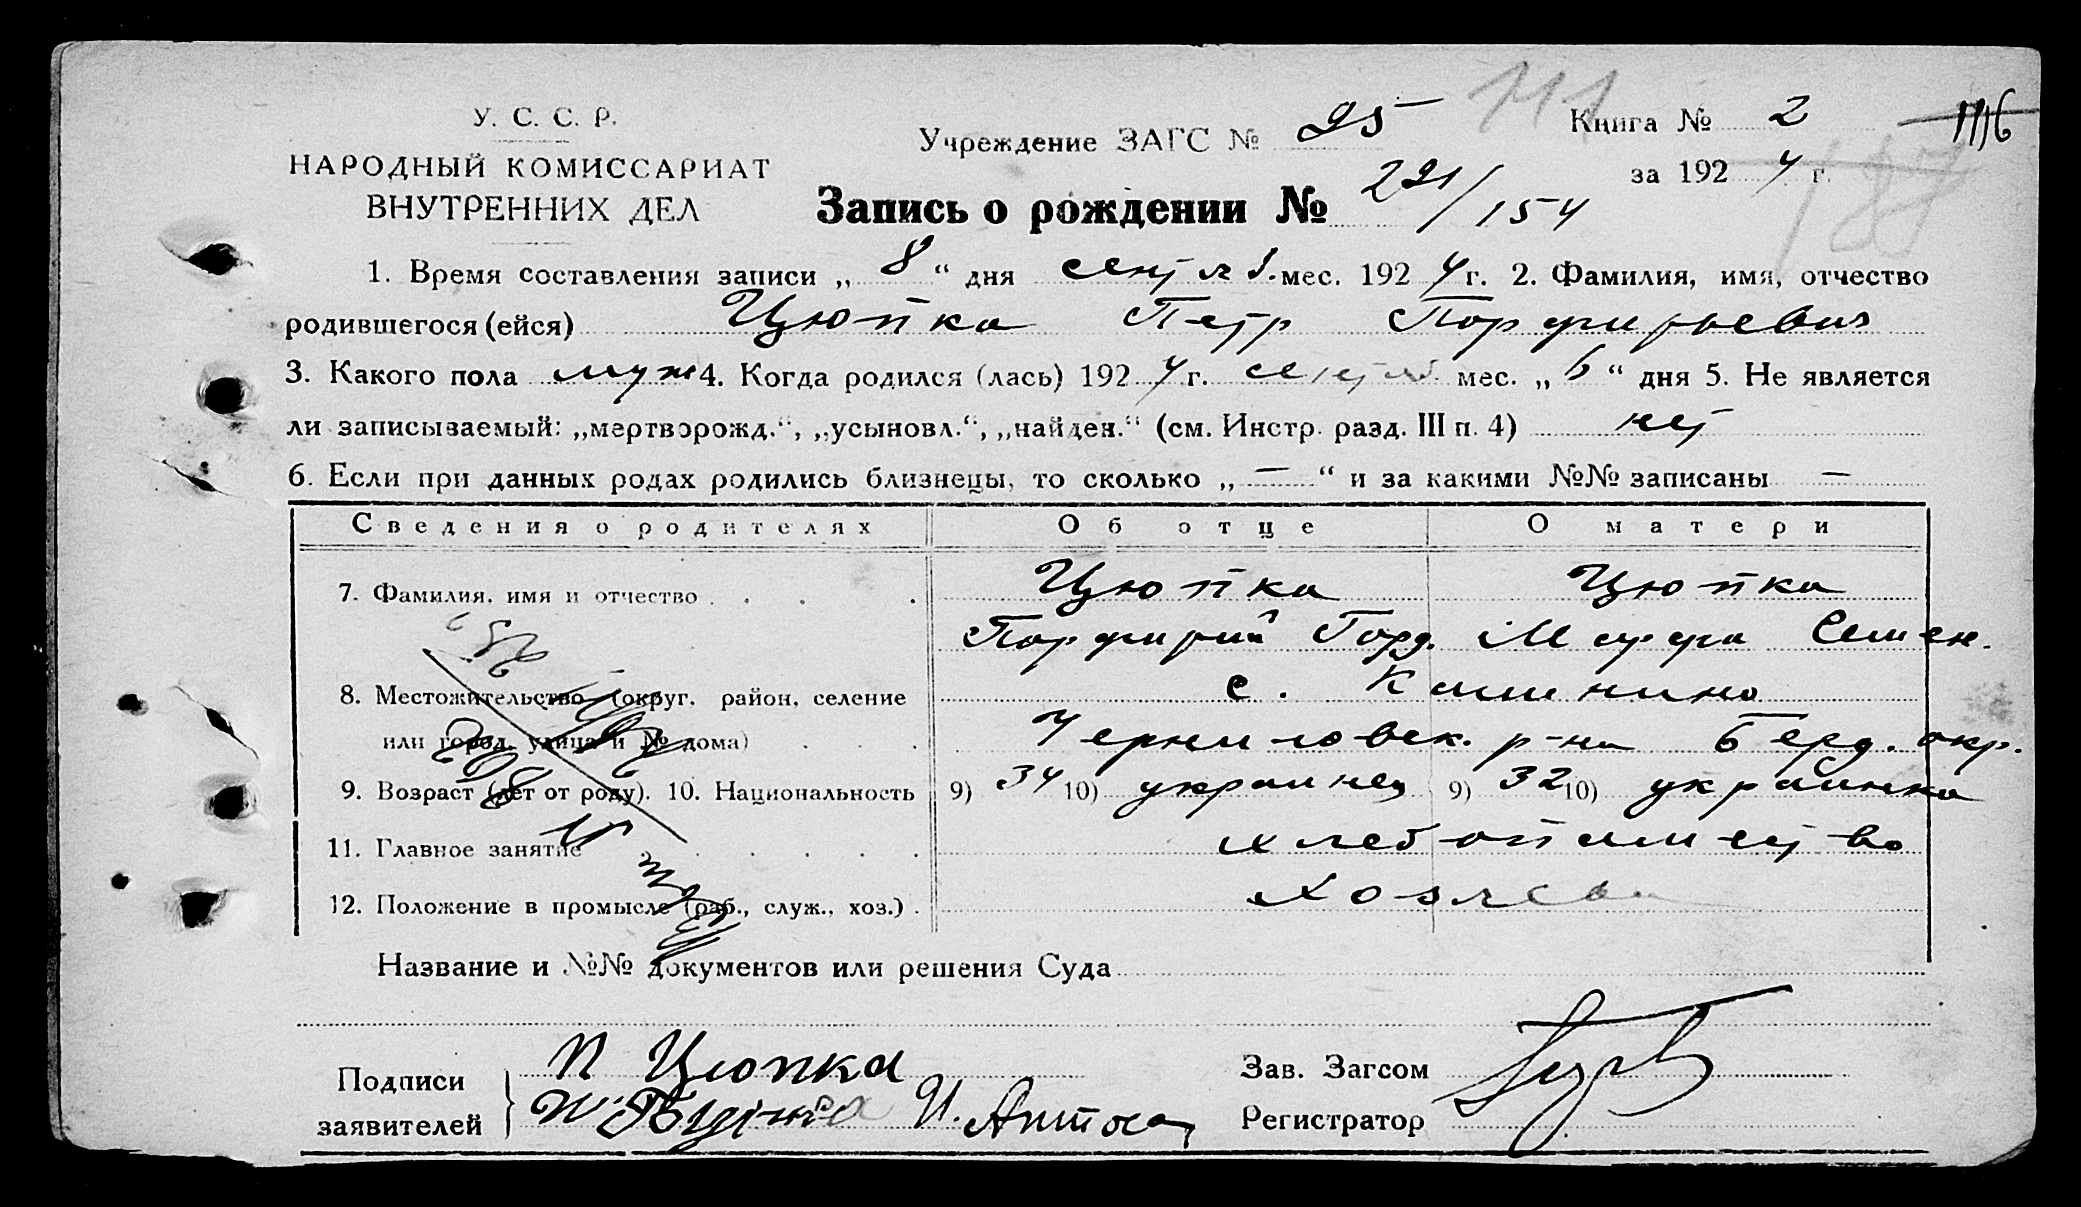 У. С. С. Р.
НАРОДНЫЙ КОМИССАРИАТ
ВНУТРЕННИХ ДЕЛ
Учреждение ЗАГС № 25
Книга № 2
за 1924 г.
Запись о рождении № 221/154
1. Время составления записи „8“ дня сентяб. мес. 1924 г. 2. Фамилия, имя, отчество
родившегося (ейся) Цюпка Петр Порфирьевич
3. Какого пола муж 4. Когда родился (лась) 1924 г. сентяб. мес. „6“ дня 5. Не является
ли записываемый: „мертворожд.“, „усыновл.“, „найден.“ (см. Инстр. разд. III п. 4) нет
6. Если при данных родах родились близнецы, то сколько „—“ и за какими №№ записаны —
Сведения о родителях Об отце О матери
7. Фамилия, имя и отчество . . . . Цюпка Цюпка
Порфирий Горд. Марфа Семен.
8. Местожительство (округ, район, селение с.
или город, улица и № дома) . . . р-на Берд. окр.
9. Возраст (лет от роду). 10. Национальность 9) 34 10) украинец 9) 32 10) украинка
11. Главное занятие . . . . . хлебопашество
12. Положение в промысле (раб., служ., хоз.) . хозяева
Название и №№ документов или решения Суда
Подписи
заявителей
П Цюпка
И.
Зав. Загсом
Регистратор